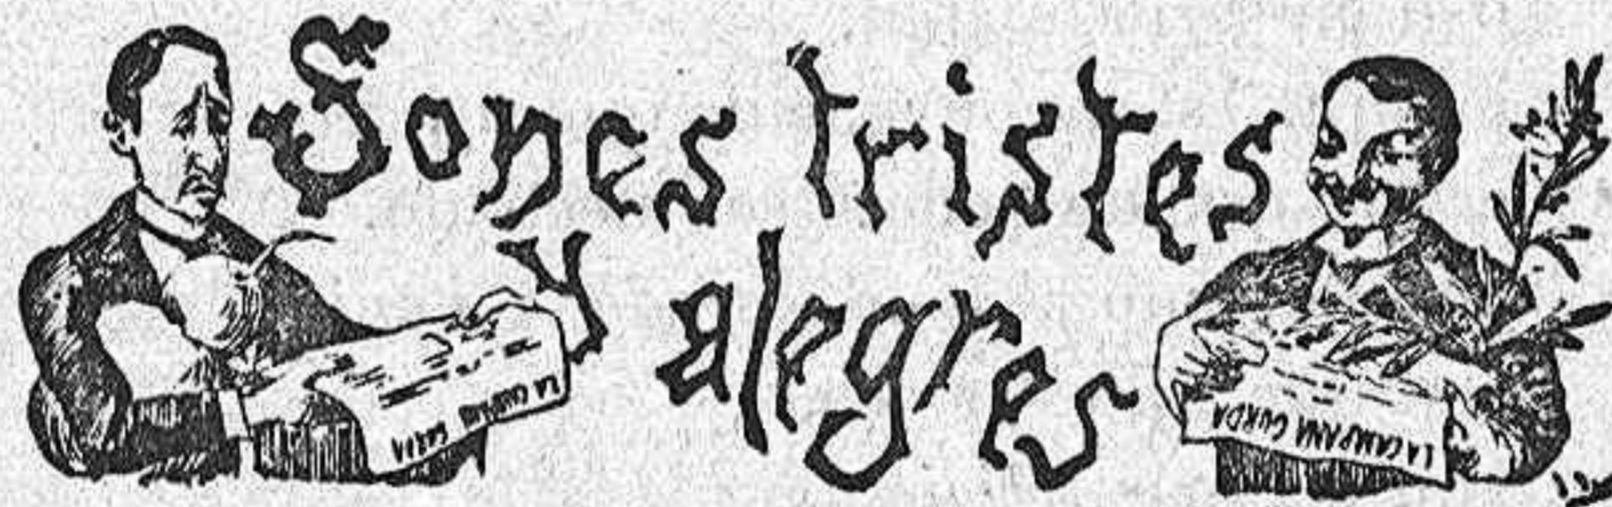 Sones tristes
y alegres
LA CAMPANA GORDA
LA CAMPANA GURDA